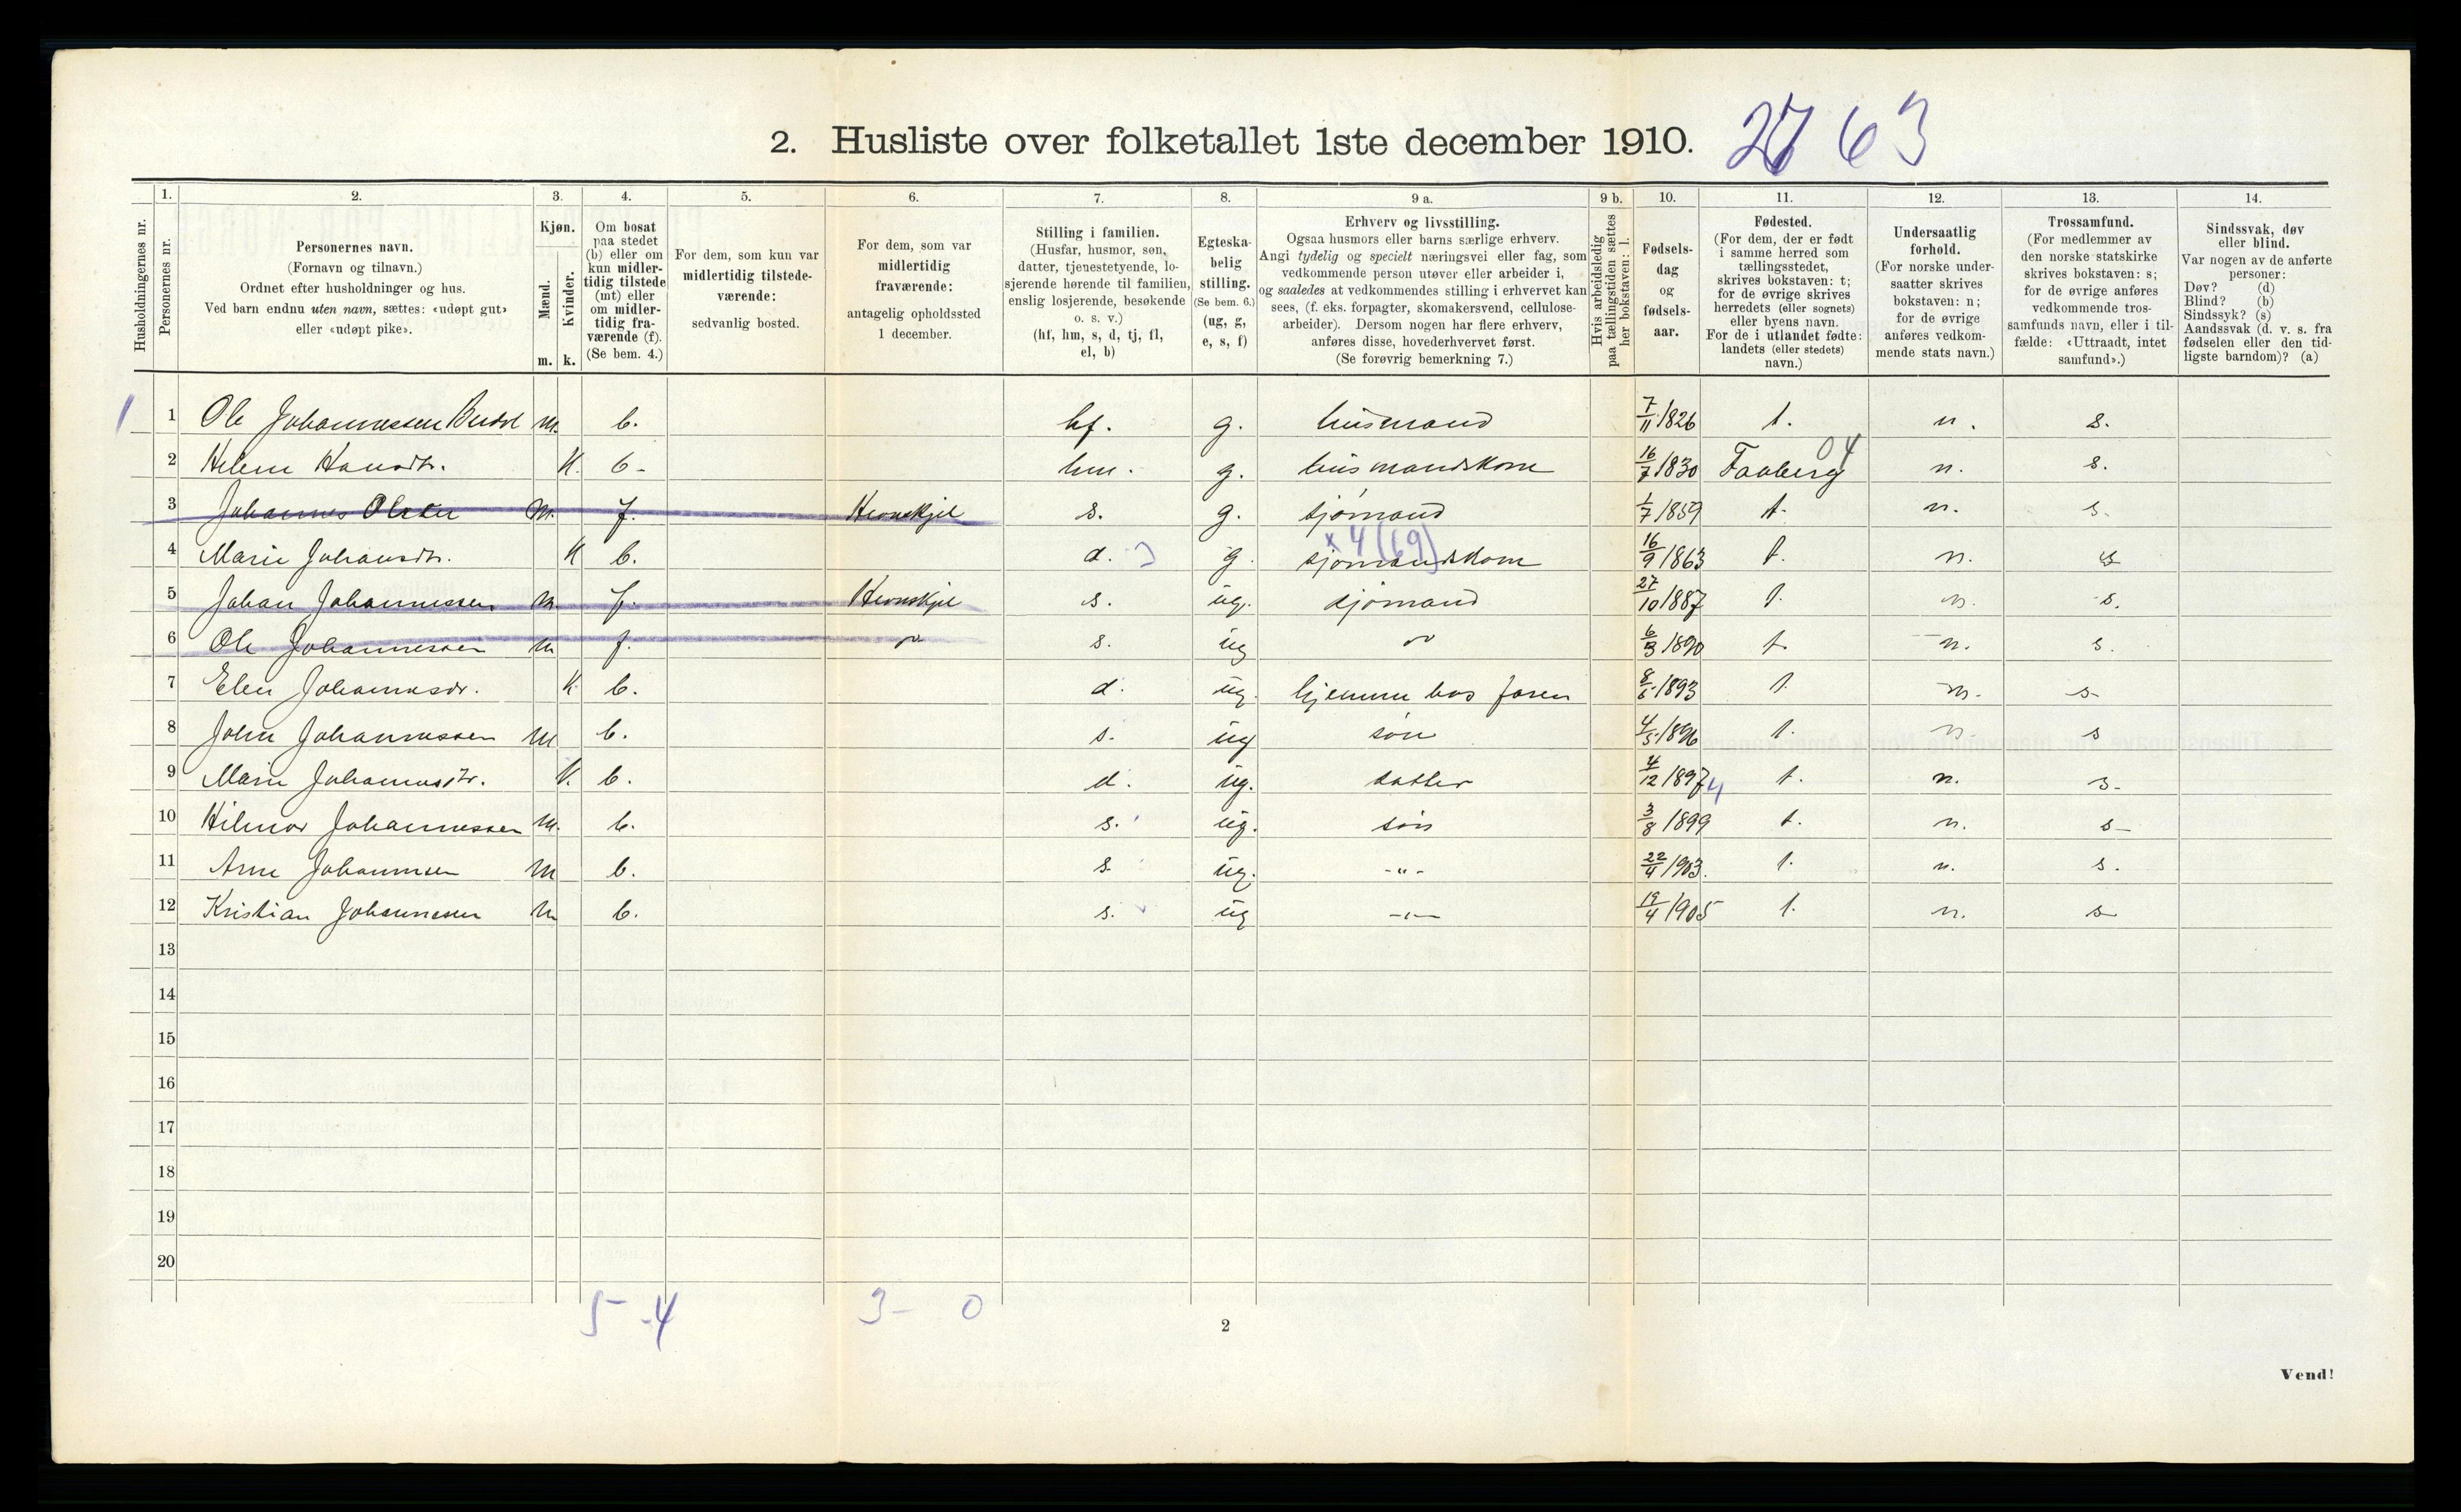 2. Husliste over folketallet 1ste december 1910. 2763
Husholdningernes nr.
1.
Personernes nr.
2.
Personernes navn.
(Fornavn og tilnavn.)
Ordnet efter husholdninger og hus.
Ved barn endnu uten navn, sættes: «udøpt gut»
eller «udøpt pike».
3.
Kjøn.
Mænd.
Kvinder.
m. k.
4.
Om bosat
paa stedet
(b) eller om
kun midler-
tidig tilstede
(mt) eller
om midler-
tidig fra-
værende (f).
(Se bem. 4.)
5.
For dem, som kun var
midlertidig tilstede-
værende:
sedvanlig bosted.
6.
For dem, som var
midlertidig
fraværende:
antagelig opholdssted
1 december.
7.
Stilling i familien.
(Husfar, husmor, søn,
datter, tjenestetyende, lo-
sjerende hørende til familien,
enslig losjerende, besøkende
o. s. v.)
(hf, hm, s, d, tj, fl,
el, b)
8.
Egteska-
belig
stilling.
(Se bem. 6.)
(ug, g,
e, s, f)
9 a.
Erhverv og livsstilling.
Ogsaa husmors eller barns særlige erhverv.
Angi tydelig og specielt næringsvei eller fag, som
vedkommende person utøver eller arbeider i,
og saaledes at vedkommendes stilling i erhvervet kan
sees, (f. eks. forpagter, skomakersvend, cellulose-
arbeider). Dersom nogen har flere erhverv,
anføres disse, hovederhvervet først.
(Se forøvrig bemerkning 7.)
9 b.
Hvis arbeidsledig
paa tællingstiden sættes
her bokstaven: l.
10.
Fødsels-
dag
og
fødsels-
aar.
11.
Fødested.
(For dem, der er født
i samme herred som
tællingsstedet,
skrives bokstaven: t;
for de øvrige skrives
herredets (eller sognets)
eller byens navn.
For de i utlandet fødte:
landets (eller stedets)
navn.)
12.
Undersaatlig
forhold.
(For norske under-
saatter skrives
bokstaven: n;
for de øvrige
anføres vedkom-
mende stats navn.)
13.
Trossamfund.
(For medlemmer av
den norske statskirke
skrives bokstaven: s;
for de øvrige anføres
vedkommende tros-
samfunds navn, eller i til-
fælde: «Uttraadt, intet
samfund».)
14.
Sindssvak, døv
eller blind.
Var nogen av de anførte
personer:
Døv? (d)
Blind? (b)
Sindssyk? (s)
Aandssvak (d. v. s. fra
fødselen eller den tid-
ligste barndom)? (a)
1 1 Ole Johannessen m. b. hf. g. husmand 7/11 1826 t. n. s.
2 Helene Hansdtr. K. b- hm. g. husmandskone 16/7 1830 Faaberg 04 n. s.
3 Johannes Olsen m. f. s. g. sjømand 1/7 1859 t. n. s.
x 4 (69)
4 Marie Johansdtr. K b. d. g. sjømandskone 16/9 1863 t. n. s
5 Johan Johannessen m f. s. ug. sjømand 27/10 1887 t. n. s.
6 Ole Johannessen m f. s. ug 6/3 1890 t. n. s.
7 Elen Johannesdr. K b. d. ug. hjemme hos faren 8/6 1893 t. n. s-
8 John Johannessen m b. s. ug søn 4/5 1896 t. n. s
9 Marie Johannesdtr. K. b. d. ug. datter 4/12 1897 4 t. n. s-
10 Hilmar Johannessen m. b. s. ug. søn 3/8 1899 t. n. s-
11 Arne Johannesen m b. s. ug. -"- 22/4 1903. t. n. s.
12 Kristian Johannesen m b. s. ug -"- 19/4 1905 t. n. s
13
14
15
16
17
18
19
20
5 - 4 3 - 0
2
Vend!